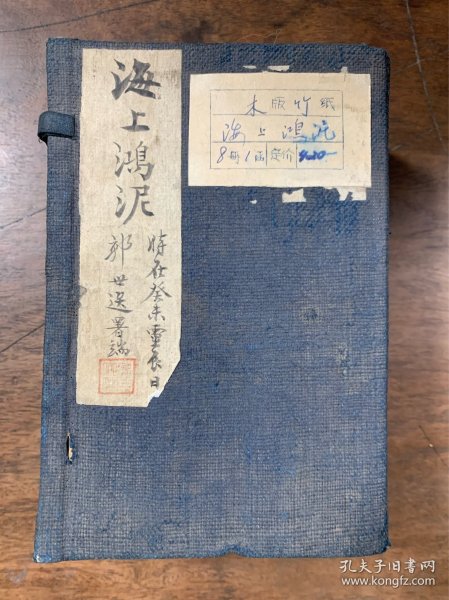 海上鴻泥
時在癸未靈辰日
郭世选署端
木版竹纸
海上鸿泥
8册1函 定价 9.20
孔夫子旧书网
www.kongfz.com